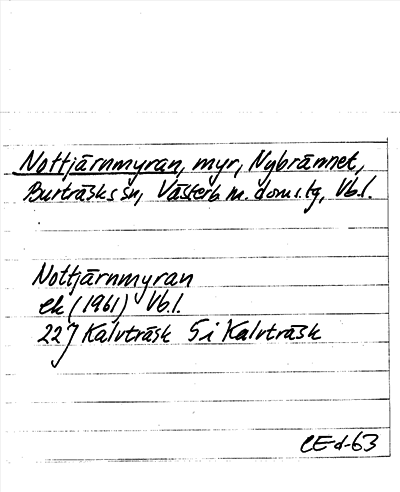 Nottjärnmyran, myr, Nybrännet,
Burträsks sn, Västerb m. doms.tg, Vb.l.
Nottjärnmyran
ek (1961) Vb.l.
22J Kalvträsk 5i Kalvträsk
CE-d-63